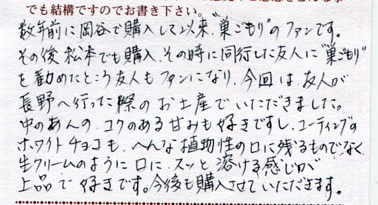 でも結構ですのでお書き下さい。
数年前に岡谷で購入して以来、"巣ごもり"のファンです。
その後松本でも購入、その時に同行した友人に"巣ごもり"
を勧めたところ友人もファンになり、今回は友人が
長野へ行った際のお土産でいただきました。
中のあんの、コクのある甘みも好きですし、コーティングの
ホワイトチョコも、へんな植物性の口に残るものでなく
生クリームのように口に、スッと溶ける感じが
上品で好きです。今後も購入させていただきます。